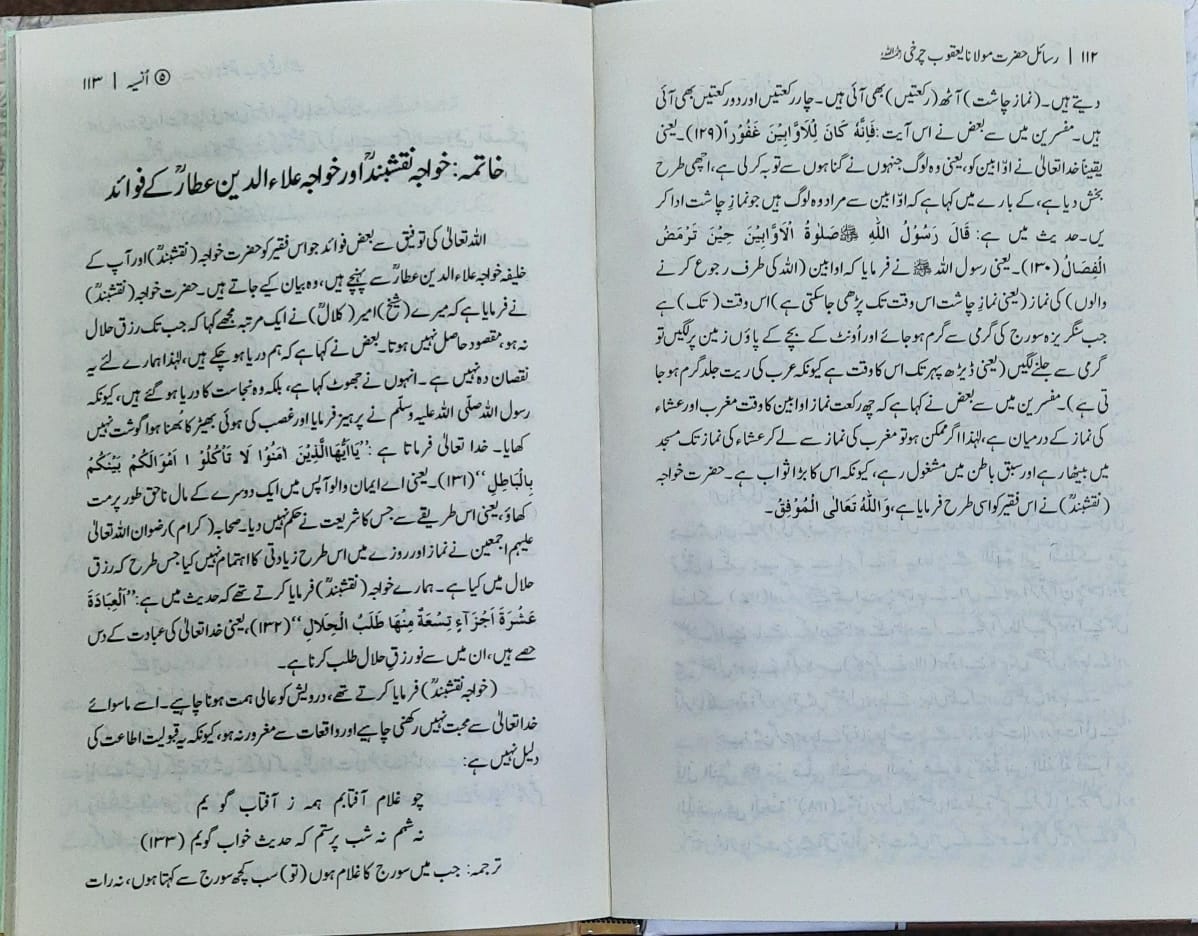 ۱۱۲ | رسائل حضرت مولانا یعقوب چرخی رحمۃ اللہ علیہ
دیتے ہیں۔ (نماز چاشت) آٹھ (رکعتیں) بھی آئی ہیں۔ چار رکعتیں اور دو رکعتیں بھی آئی
ہیں۔ مفسرین میں سے بعض نے اس آیت: فَاِنَّهٗ كَانَ لِلْاَوَّابِيْنَ غَفُوْرًا (۱۲۹)۔ یعنی
یقیناً خدا تعالیٰ نے اوّابین کو، یعنی وہ لوگ جنہوں نے گناہوں سے توبہ کر لی ہے، اچھی طرح
بخش دیا ہے، کے بارے میں کہا ہے کہ اوّابین سے مراد وہ لوگ ہیں جو نمازِ چاشت ادا کر
یں۔ حدیث میں ہے: قَالَ رَسُوْلُ اللهِ ﷺ صَلٰوةُ الْاَوَّابِيْنَ حِيْنَ تَرْمَضُ
الْفِصَالُ (۱۳۰)۔ یعنی رسول اللہ ﷺ نے فرمایا کہ اوابین (اللہ کی طرف رجوع کرنے
والوں) کی نماز (یعنی نماز چاشت اس وقت تک پڑھی جا سکتی ہے) اس وقت (تک) ہے
جب سنگریزہ سورج کی گرمی سے گرم ہو جائے اور اُونٹ کے بچے کے پاؤں زمین پر لگیں تو
گرمی سے جلنے لگیں (یعنی ڈیڑھ پہر تک اس کا وقت ہے کیونکہ عرب کی ریت جلد گرم ہو جا
تی ہے)۔ مفسرین میں سے بعض نے کہا ہے کہ چھ رکعت نماز اوابین کا وقت مغرب اور عشاء
کی نماز کے درمیان ہے، لہٰذا اگر ممکن ہو تو مغرب کی نماز سے لے کر عشاء کی نماز تک مسجد
میں بیٹھا رہے اور سبق باطن میں مشغول رہے، کیونکہ اس کا بڑا ثواب ہے۔ حضرت خواجہ
(نقشبندؒ) نے اس فقیر کو اسی طرح فرمایا ہے، وَاللّٰهُ تَعَالٰى الْمُوَفِّقُ۔
⑤ اُنسیہ | ۱۱۳
خاتمہ: خواجہ نقشبندؒ اور خواجہ علاء الدین عطارؒ کے فوائد
اللہ تعالیٰ کی توفیق سے بعض فوائد جو اس فقیر کو حضرت خواجہ (نقشبندؒ) اور آپ کے
خلیفہ خواجہ علاء الدین عطارؒ سے پہنچے ہیں، وہ بیان کیے جاتے ہیں۔ حضرت خواجہ (نقشبندؒ)
نے فرمایا ہے کہ میرے (شیخ) امیر (کلالؒ) نے ایک مرتبہ مجھے کہا کہ جب تک رزق حلال
نہ ہو، مقصود حاصل نہیں ہوتا۔ بعض نے کہا ہے کہ ہم دریا ہو چکے ہیں، لہٰذا ہمارے لئے یہ
نقصان دہ نہیں ہے۔ انہوں نے جھوٹ کہا ہے، بلکہ وہ نجاست کا دریا ہو گئے ہیں، کیونکہ
رسول اللہ صلّی اللہ علیہ وسلّم نے پرہیز فرمایا اور غصب کی ہوئی بھیڑ کا بھُنا ہوا گوشت نہیں
کھایا۔ خدا تعالیٰ فرماتا ہے: ”يَااَيُّهَا الَّذِيْنَ اٰمَنُوْا لَا تَاْكُلُوْ ا اَمْوَالَكُمْ بَيْنَكُمْ
بِالْبَاطِلِ“ (۱۳۱)۔ یعنی اے ایمان والو آپس میں ایک دوسرے کے مال ناحق طور پر مت
کھاؤ، یعنی اس طریقے سے جس کا شریعت نے حکم نہیں دیا۔ صحابہ (کرام) رضوان اللہ تعالیٰ
علیہم اجمعین نے نماز اور روزے میں اس طرح زیادتی کا اہتمام نہیں کیا جس طرح کہ رزق
حلال میں کیا ہے۔ ہمارے خواجہ (نقشبندؒ) فرمایا کرتے تھے کہ حدیث میں ہے: ”اَلْعِبَادَةَ
عَشْرَةَ اَجْزَآءٍ تِسْعَةٌ مِنْهَا طَلَبُ الْحَلَالِ“ (۱۳۲)، یعنی خدا تعالیٰ کی عبادت کے دس
حصے ہیں، ان میں سے نو رزقِ حلال طلب کرنا ہے۔
(خواجہ نقشبندؒ) فرمایا کرتے تھے، درویش کو عالی ہمت ہونا چاہیے۔ اسے ماسوائے
خدا تعالیٰ سے محبت نہیں رکھنی چاہیے اور واقعات سے مغرور نہ ہو، کیونکہ یہ قبولیت اطاعت کی
دلیل نہیں ہے:
چو غلام آفتابم ہمہ ز آفتاب گویم
نہ شبم نہ شب پرستم کہ حدیث خواب گویم (۱۳۳)
ترجمہ: جب میں سورج کا غلام ہوں (تو) سب کچھ سورج سے کہتا ہوں، نہ رات